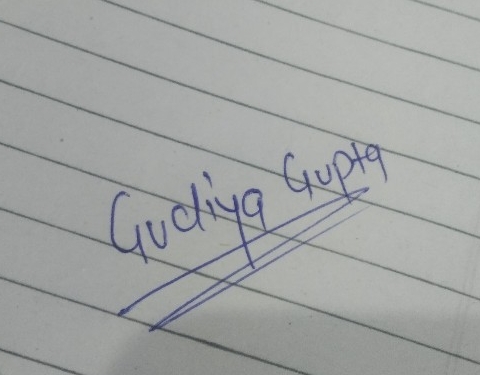 Gudiya Gupta